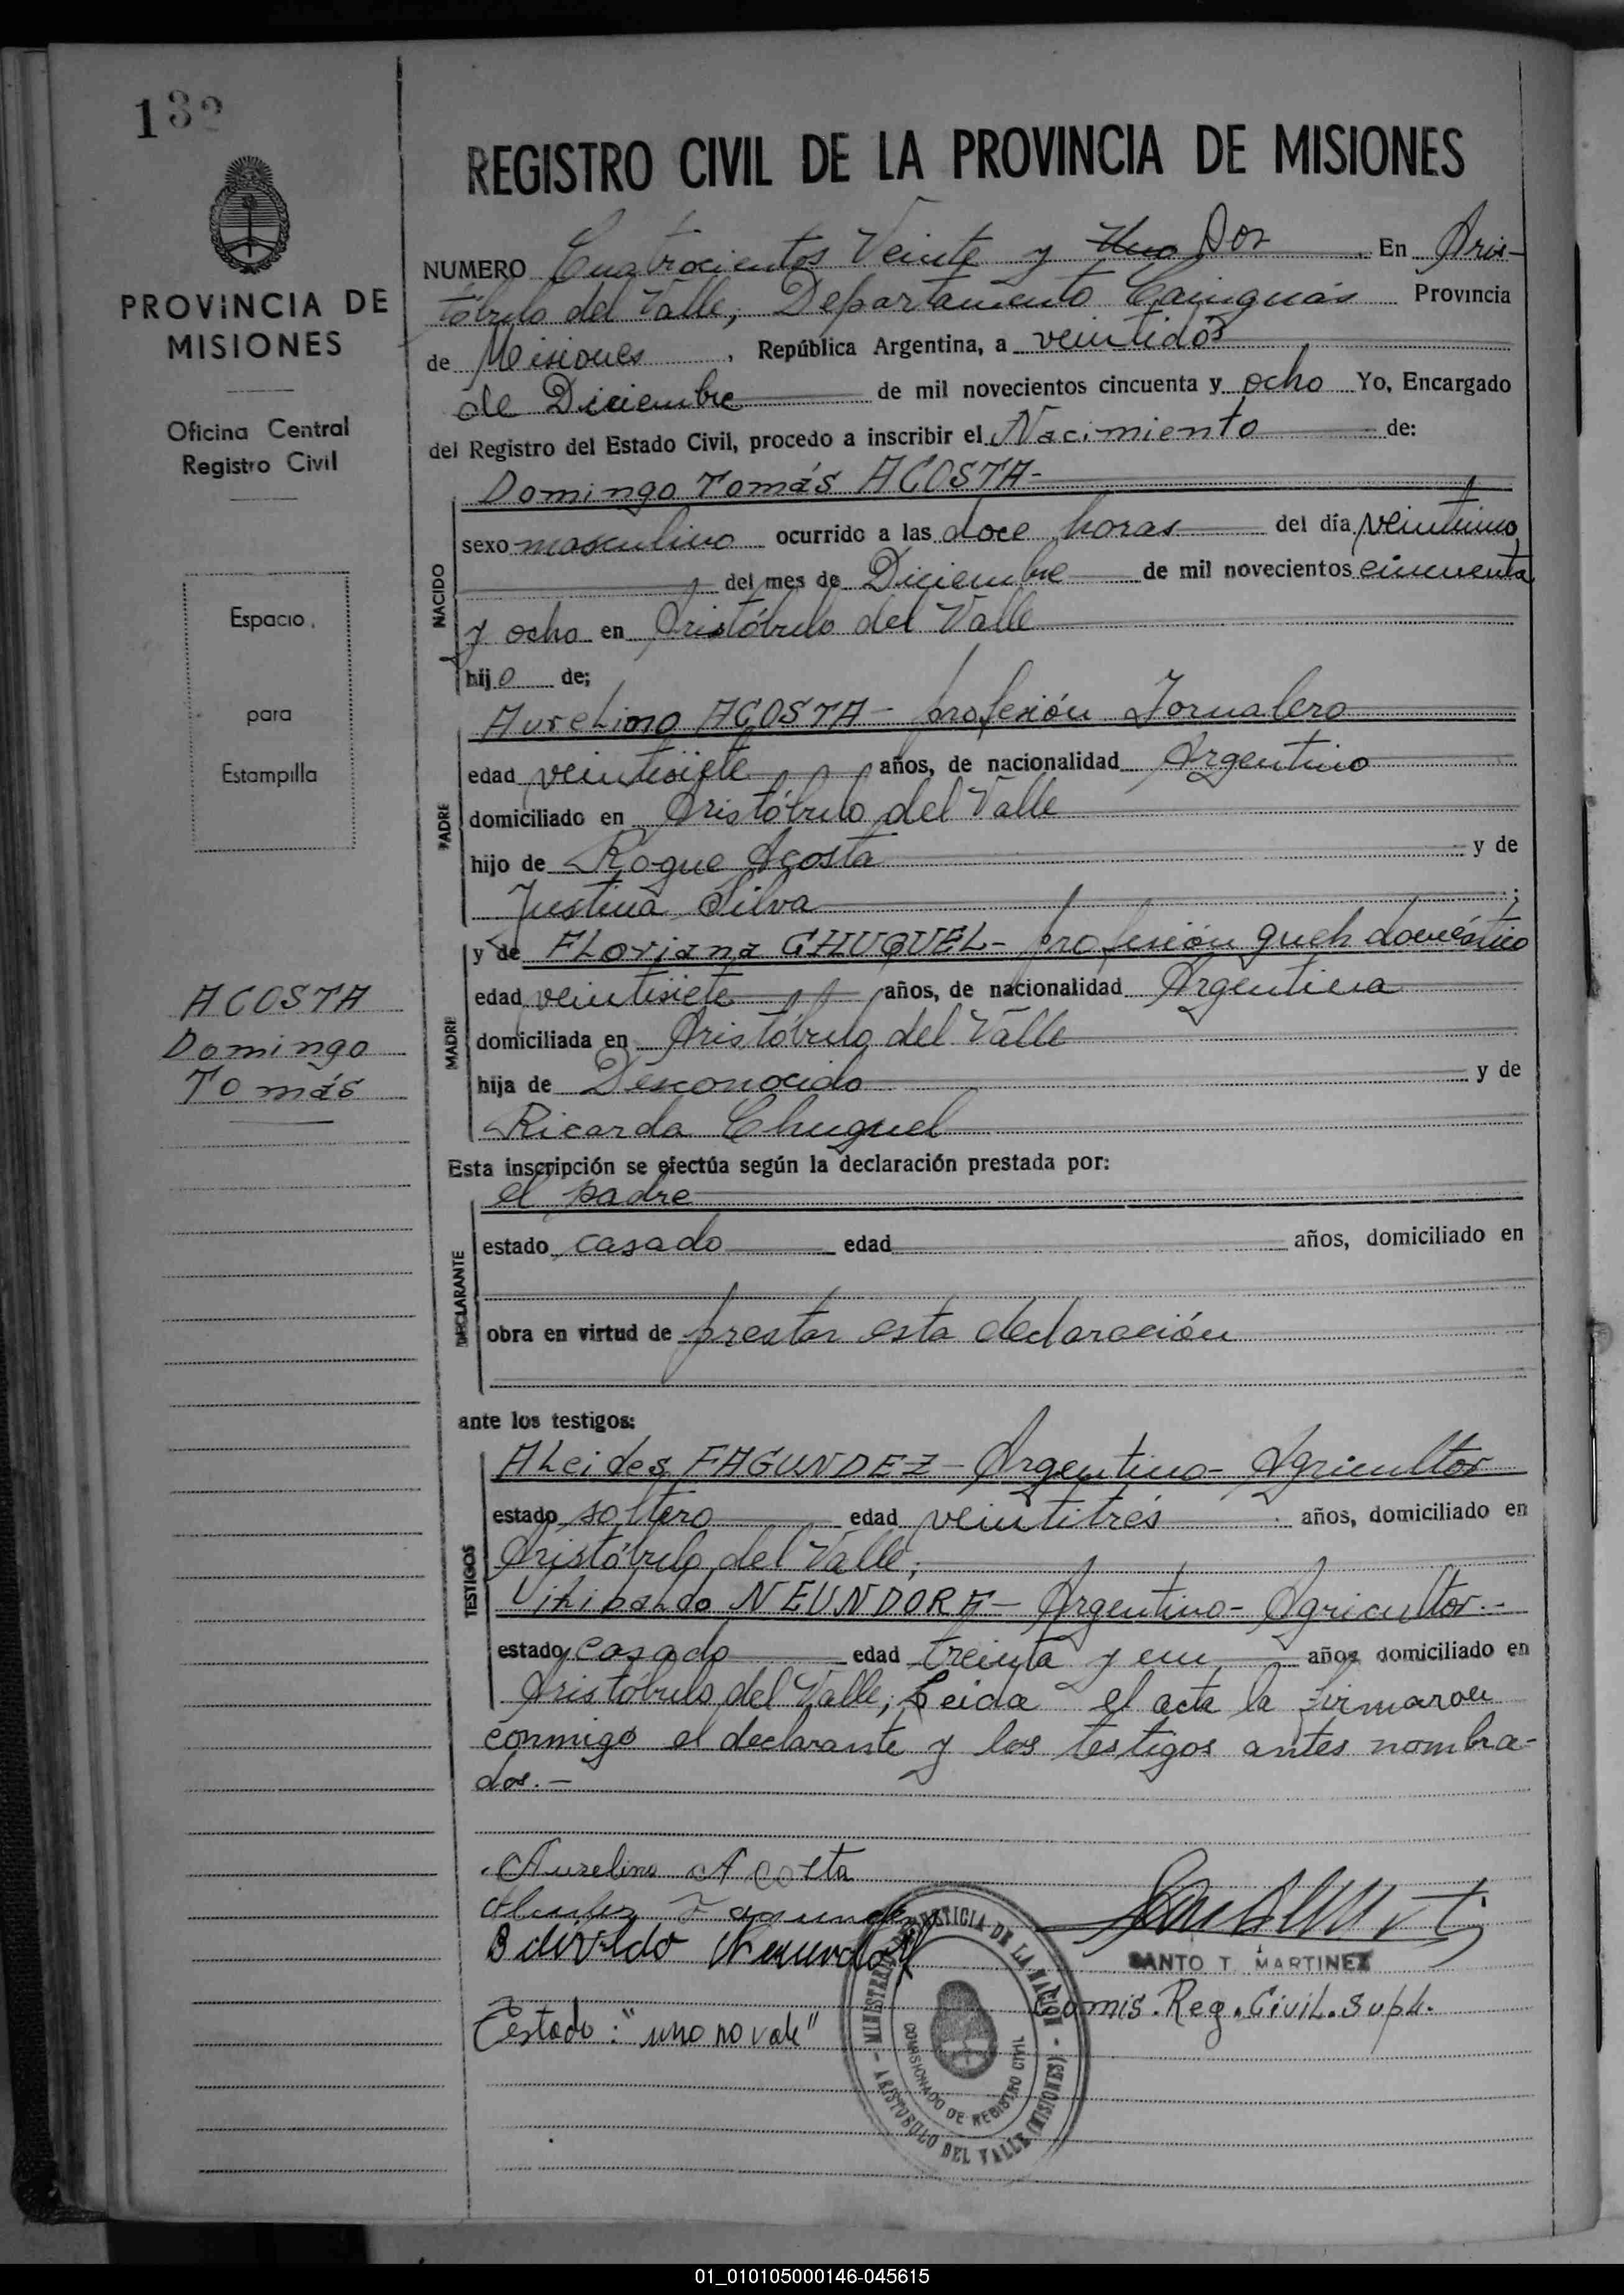 132
PROVINCIA DE
MISIONES
Oficina Central
Registro Civil
Espacio
para
Estampilla
ACOSTA
Domingo
Tomás
REGISTRO CIVIL DE LA PROVINCIA DE MISIONES
NUMERO Cuatrocientos Veinte y Uno Dos. En Aris-
tóbulo del Valle, Departamento Cainguás Provincia
de Misiones, República Argentina, a veintidós
de Diciembre de mil novecientos cincuenta y ocho Yo, Encargado
del Registro del Estado Civil, procedo a inscribir el Nacimiento de:
Domingo Tomás ACOSTA-
NACIDO
sexo masculino ocurrido a las doce horas del día veintiuno
del mes de Diciembre de mil novecientos cincuenta
y ocho en Aristóbulo del Valle
hijo de;
Aurelino ACOSTA- profesión Jornalero
PADRE
edad veintisiete años, de nacionalidad Argentino
domiciliado en Aristóbulo del Valle
hijo de Roque Acosta y de
Justina Silva;
y de FLoriana CHUQUEL- profesión queh doméstico
MADRE
edad veintisiete años, de nacionalidad Argentina
domiciliada en Aristóbulo del Valle
hija de Desconocido y de
Ricarda Chuquel
Esta inscripción se efectúa según la declaración prestada por:
el padre
DECLARANTE
estado casado edad años, domiciliado en
obra en virtud de prestar esta declaración
ante los testigos:
ALcides FAGUNDEZ- Argentino- Agricultor
TESTIGOS
estado soltero edad veintitrés años, domiciliado en
Aristóbulo del Valle;
NEUNDORF- Argentino- Agricultor.-
estado casado edad treinta y un años domiciliado en
Aristóbulo del Valle; Leida el acta la firmaron
conmigo el declarante y los testigos antes nombra-
dos.-
Aurelino Acosta
SANTO T. MARTINEZ
Comis. Reg. Civil. Supl.
Testado: "uno no vale"
MINISTERIO DE JUSTICIA DE LA NACION
COMISIONADO DE REGISTRO CIVIL
ARISTOBULO DEL VALLE (MISIONES)
01_010105000146-045615